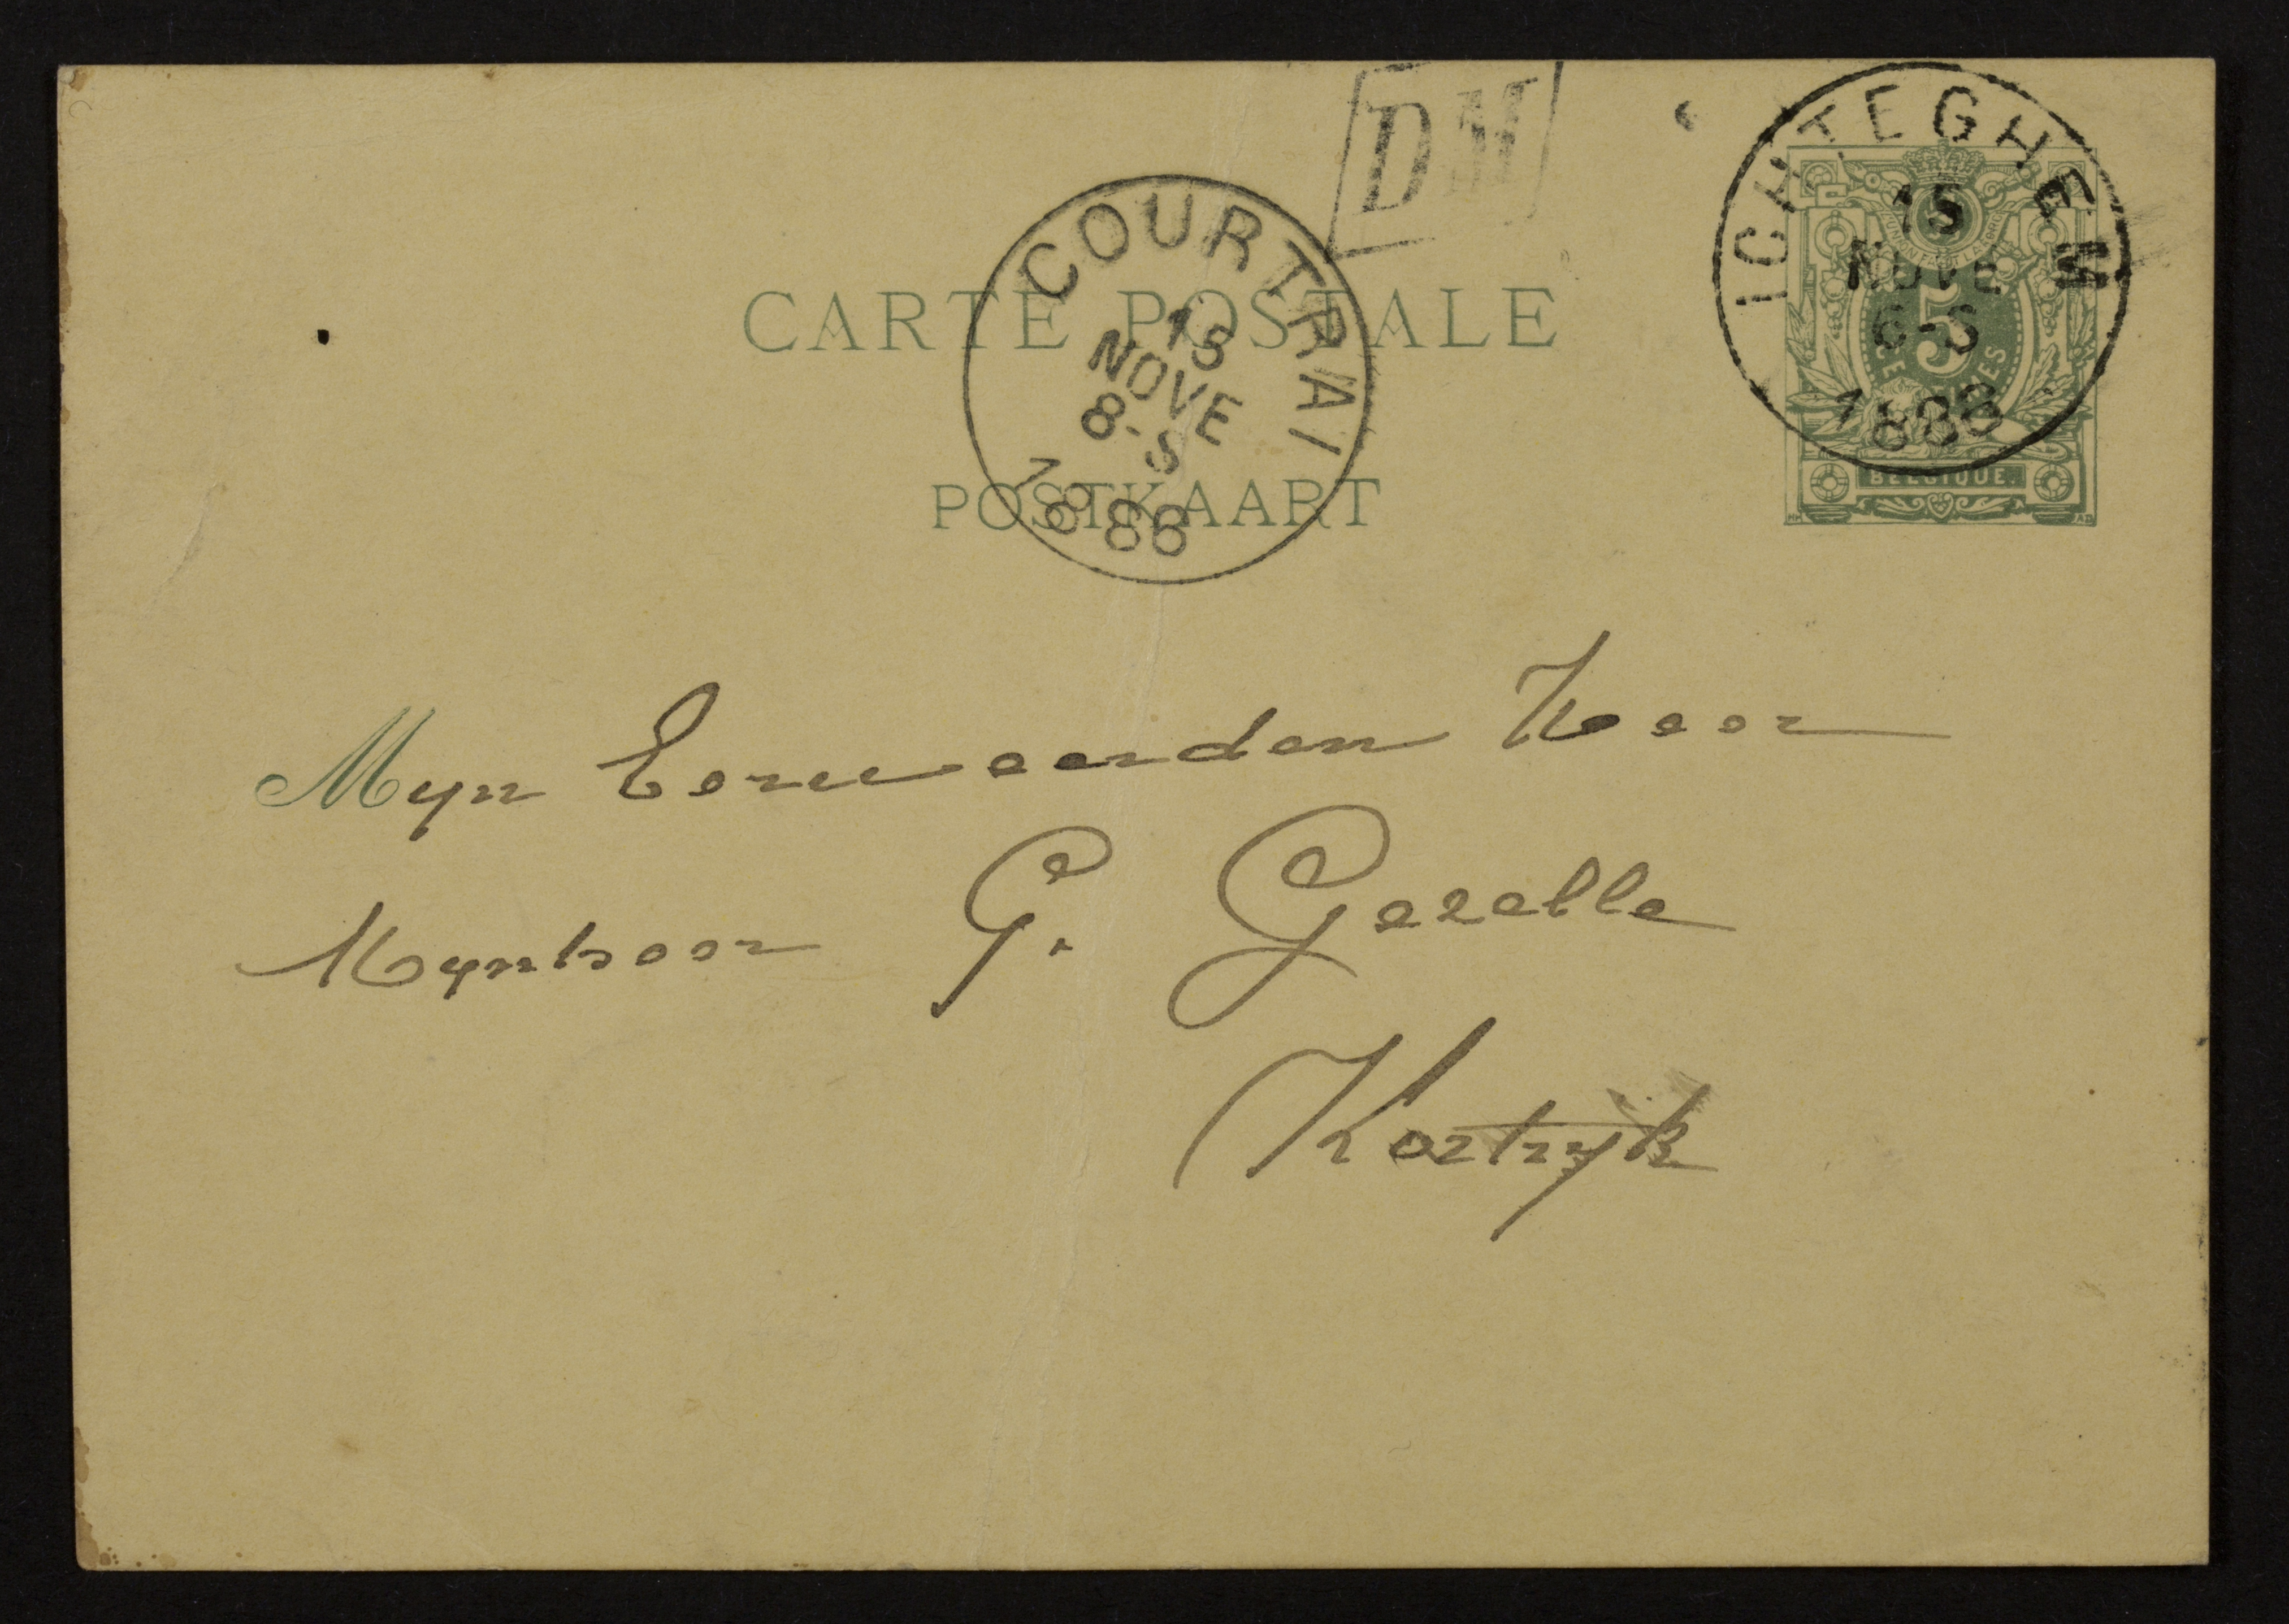 DM
ICHTEGHEM
15
NOVE
6-S
1888
5
CENTIMES
BELGIQUE.
COURTRAI
15
NOVE
8-S
1888
CARTE POSTALE
POSTKAART
Myn Eerweerden Heer
Mynheer G. Gezelle
Kortryk